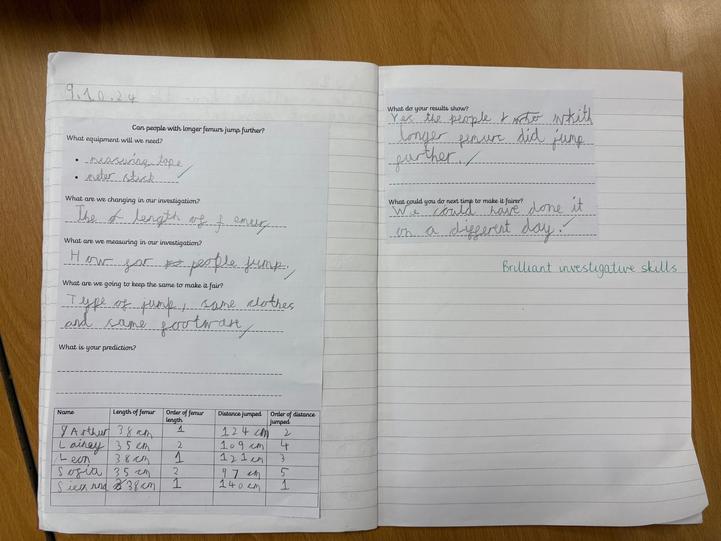 9.10.24
Can people with longer femurs jump further?
What equipment will we need?
• measuring tape
• meter stick
What are we changing in our investigation?
The length of femur
What are we measuring in our investigation?
How far people jump.
What are we going to keep the same to make it fair?
Type of jump, same clothes
and same footware
What is your prediction?
Name Length of femur Order of femur length Distance jumped Order of distance jumped
Arthur 38cm 1 124 cm 2
Lainey 35cm 2 109cm 4
Leon 38cm 1 121cm 3
Sofia 35cm 2 97 cm 5
Sienna 38cm 1 140cm 1
What do your results show?
Yes the people whith
longer femurs did jump
further.
What could you do next time to make it fairer?
We could have done it
on a different day.
Brilliant investigative skills